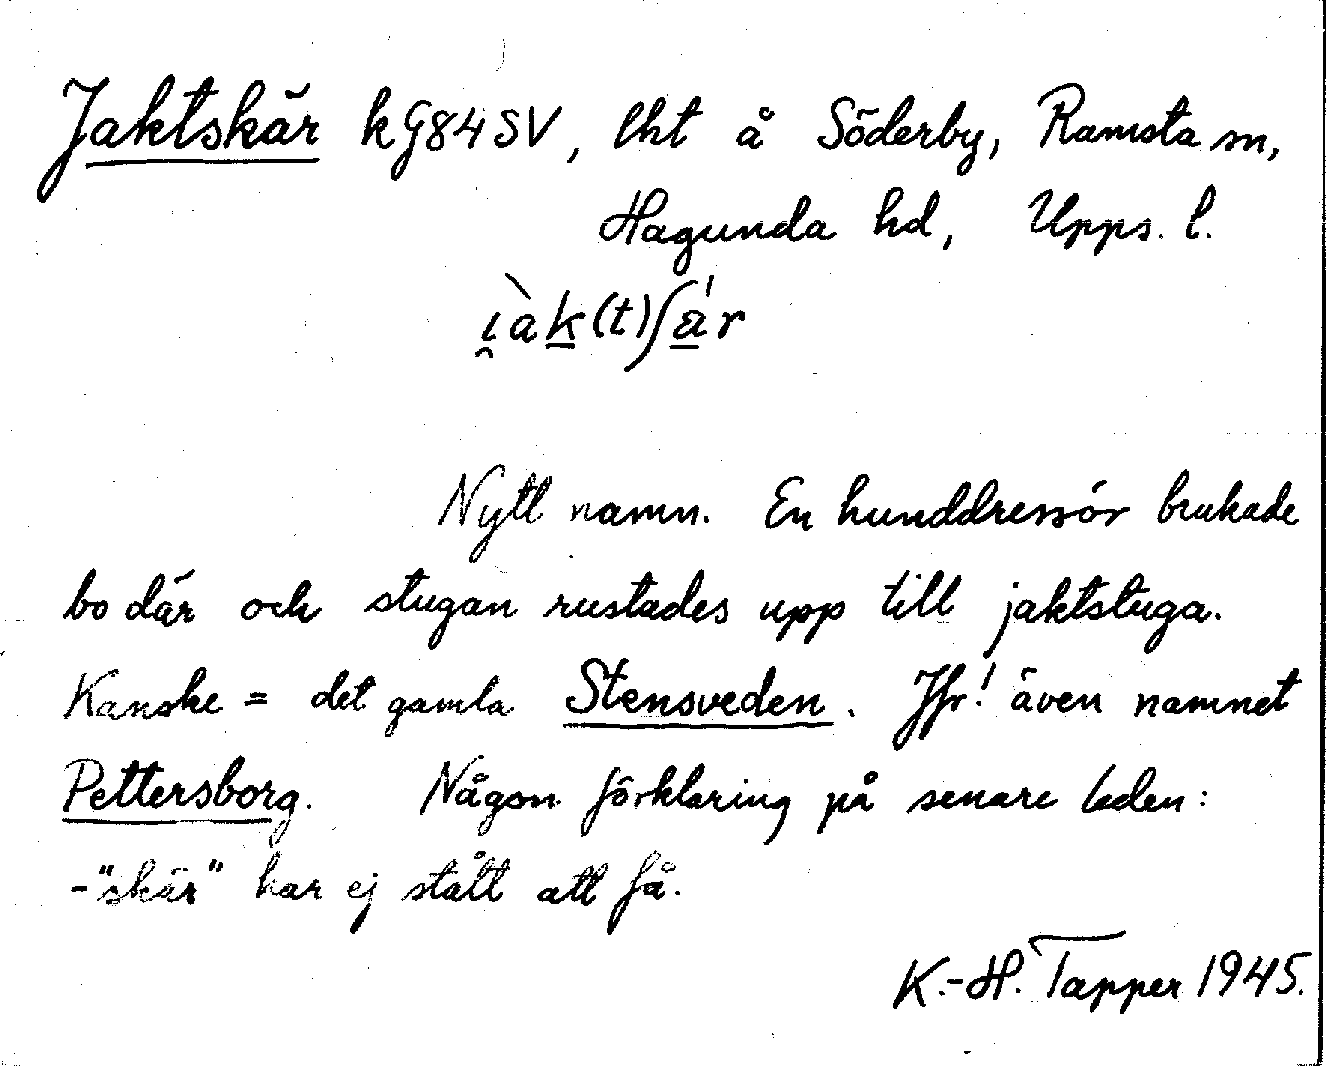 Jaktskär kG84SV, lht å Söderby, Ramsta sn,
Hagunda hd, Upps. l.
i̯àk(t)ʃä́r
Nytt namn. En hunddressör brukade
bo där och stugan rustades upp till jaktstuga.
Kanske = det gamla Stensveden. Jfr! även namnet
Pettersborg. Någon förklaring på senare leden:
-"skär" har ej stått att få.
K.-H. Tapper 1945.